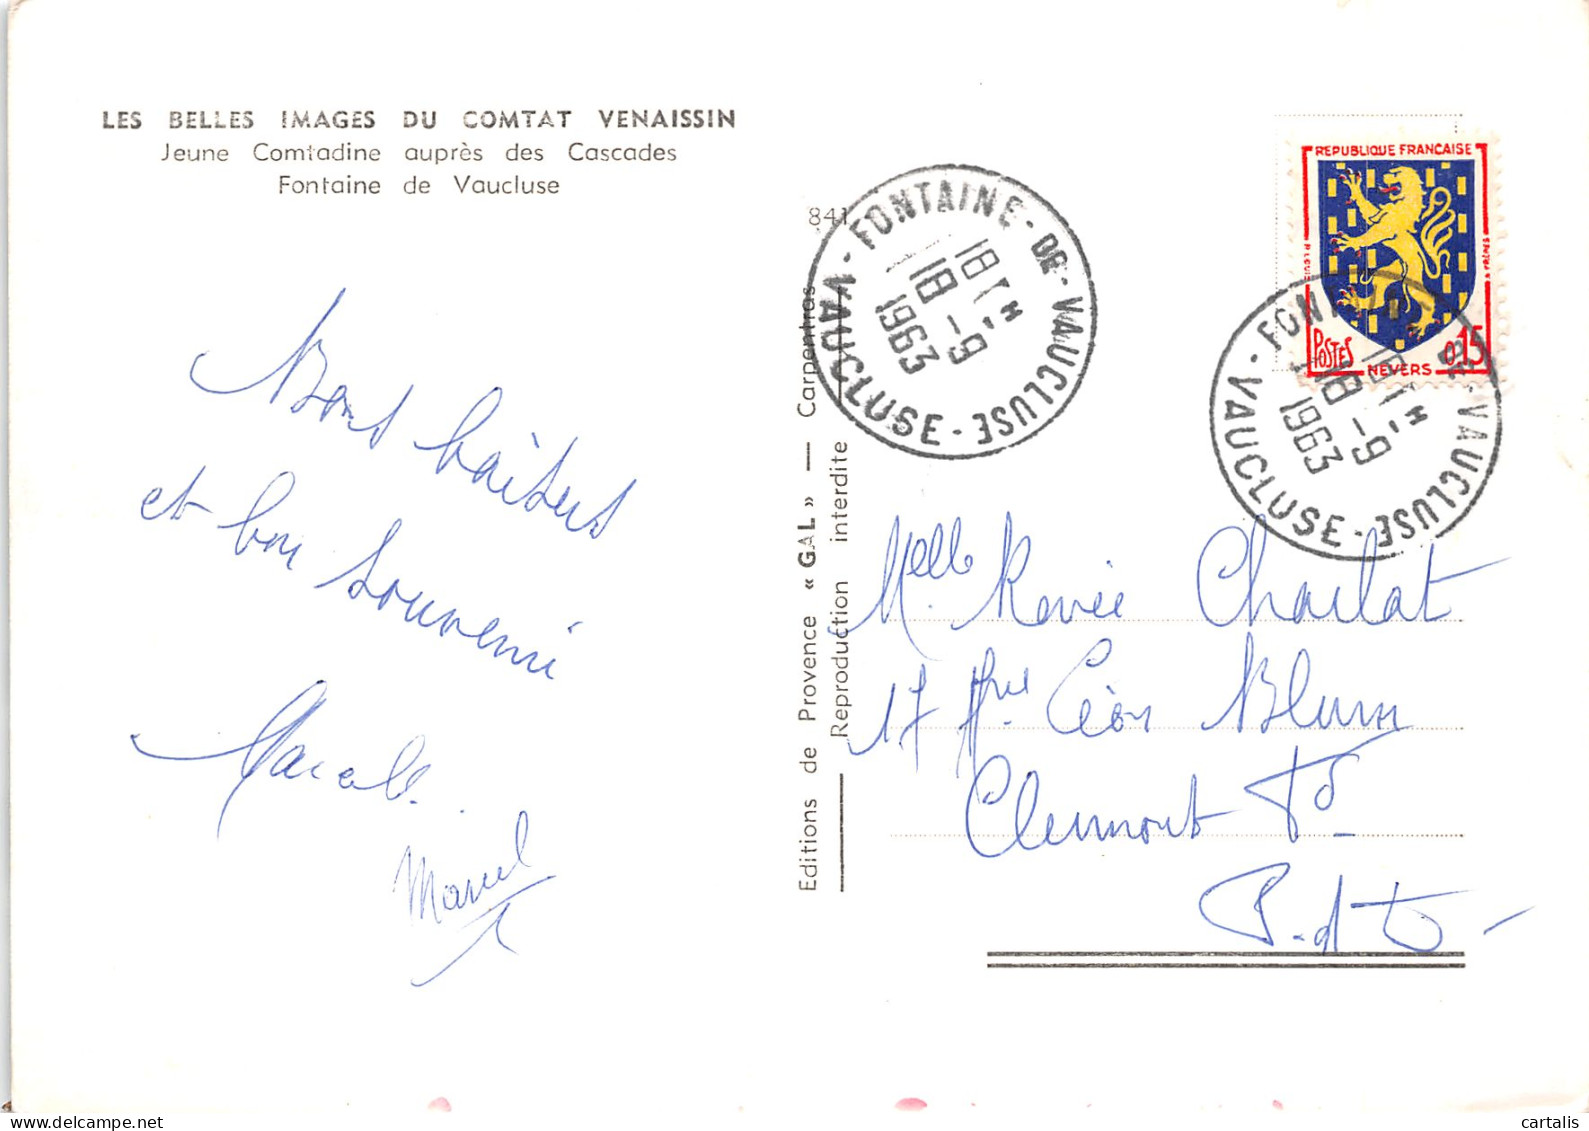 LES BELLES IMAGES DU COMTAT VENAISSIN
Jeune Comtadine auprès des Cascades
Fontaine de Vaucluse
Bons baisers
et bon souvenir
Marcel
841
Editions de Provence « GAL » — Carpentras
Reproduction interdite
FONTAINE-DE-VAUCLUSE - VAUCLUSE -
18 H
18 -9
1963
REPUBLIQUE FRANCAISE
POSTES
0,15
NEVERS
FONTAINE-DE-VAUCLUSE - VAUCLUSE -
18 H
18 -9
1963
Melle Renée Charlat
17 Léon Blum
Clermont Fd
P.-de-D-
cartalis